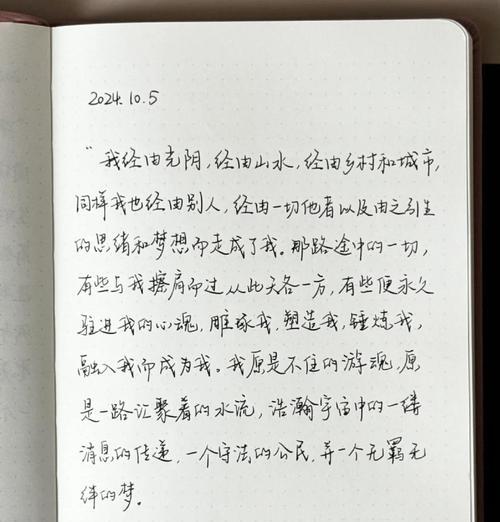 2024.10.5
"我经由光阴,经由山水,经由乡村和城市,
同样我也经由别人,经由一切他者以及由之引生
的思绪和梦想而走成了我。那路途中的一切,
有些与我擦肩而过从此天各一方,有些便永久
驻进我的心魂,雕琢我,塑造我,锤炼我,
融入我而成为我。我原是不住的游魂,原
是一路汇聚着的水流,浩瀚宇宙中的一缕
消息的传递,一个守法的公民,并一个无羁无
绊的梦。